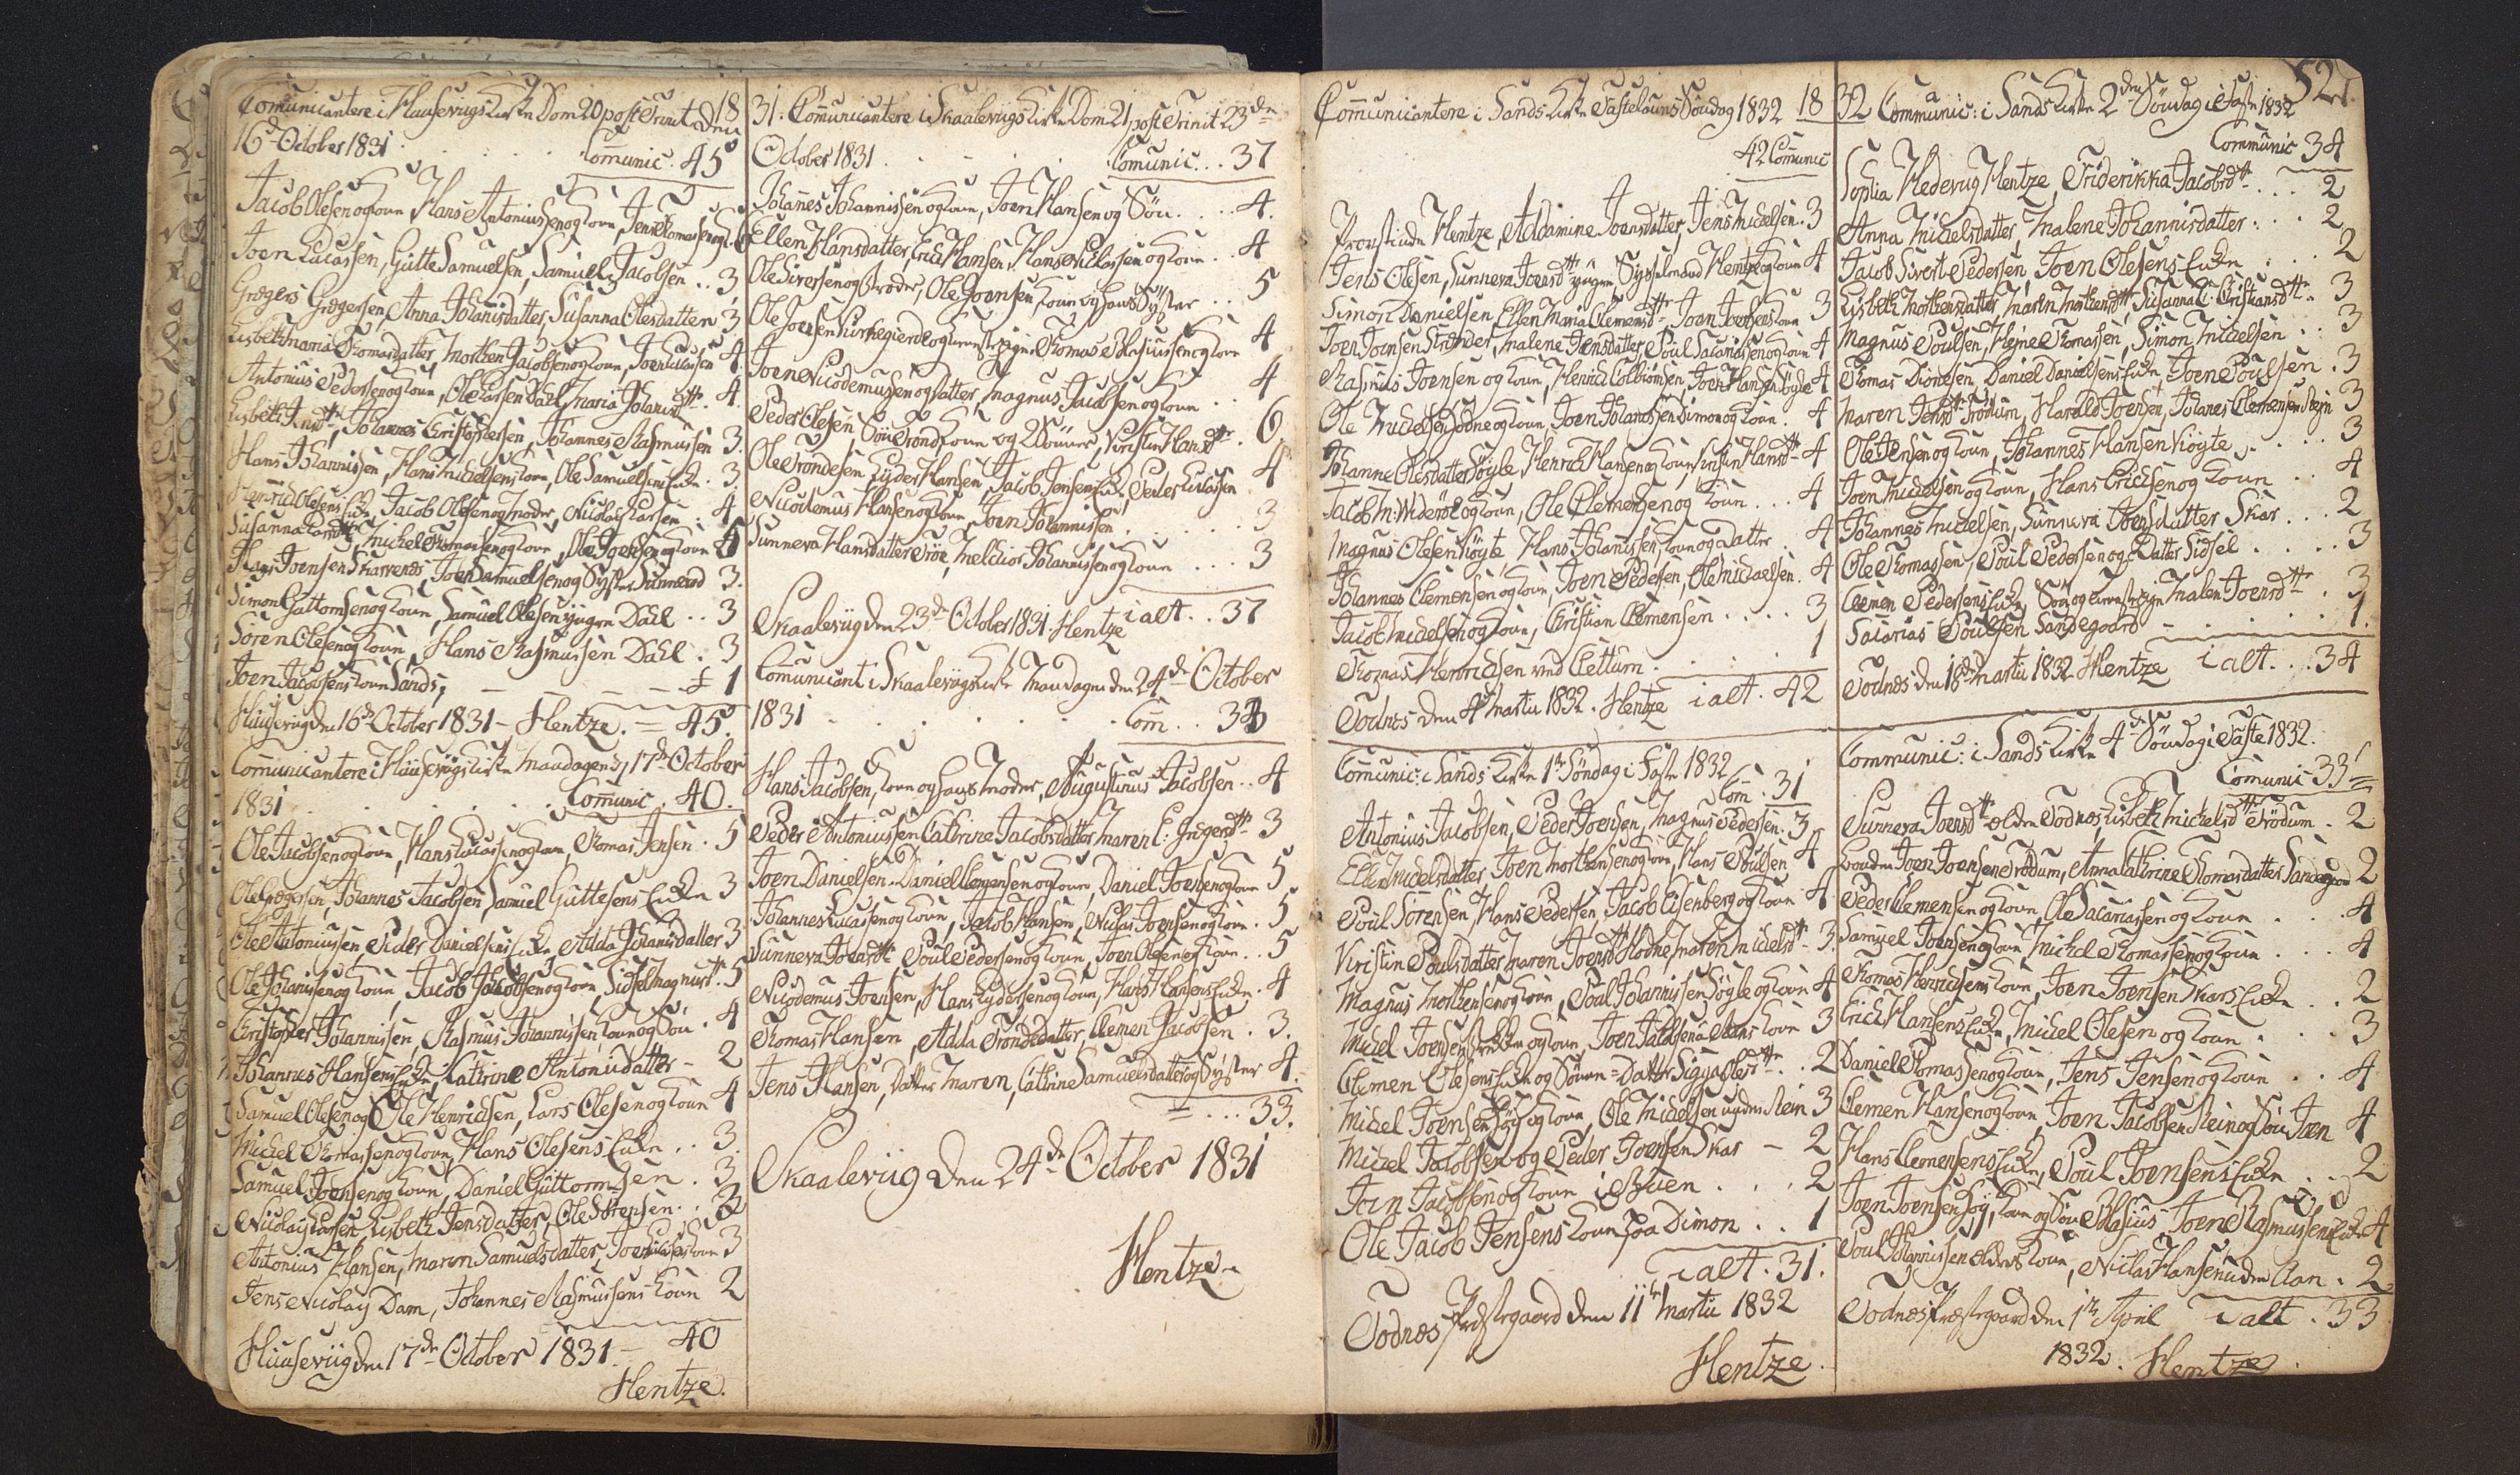 Comunicantere i Huusevigs Kirke Dom 20 post Trinit den
16de October 1831 . . . . Comunic. 45
Jacob Olesen og Kone, Hans Antoniussen og Kone, Jens Thomassen og K. 6
Joen Lucassen, Gutte Samuelsen, Samuel Jacobsen . . 3
Gregers Gregersen, Anna Johanisdatter, Susanna Olesdatter 3
Lisbeth Maria Thomasdatter, Morthen Jacobsen og Kone, Joen Lucassen 4
Antonius Pedersen og Kone, Ole Larsen Dahl, Maria Johanisdtr. 4
Lisbeth Jensdtr, Johannes Christophersen, Johannes Rasmussen 3
Hans Johannissen, Hans Michelsens Kone, Ole Samuelsens Enke . 3
Henrich Olesens Enke, Jacob Olesen og Moder, Nicolay Larsen . 4
Susanna, Michel Thomassen og Kone, Ole Joensen og Kone 5
Hans Joensen Skarvenes, Joen Samuelsen og Syster Sunneva 3.
Simon Guttormsen og Kone, Samuel Olesen yngre Dahl . . 3
Sören Olesen og Kone, Hans Rasmussen Dahl . 3
Joen Jacobsens Kone Sands, 1
Huusevig den 16de October 1831 - Hentze. = 45.
Comunicantere i Huusevigs Kirke Mandagen d. 17de October
1831 . . . . . Comunic. 40.
Ole Jacobsen og Kone, Hans Lucassen og Kone, Thomas Jensen . 5
Ole Gregersen, Johannes Jacobsen, Samuel Guttesens Enke 3
Ole Antoniussen, Peder Danielsens Enke, Adda Johanisdatter 3
Ole Johanissen og Kone, Jacob Jacobsen og Kone, Sidsel Magnusdtr. 5
Christopher Johannissen, Rasmus Johannissen, Kone og Sön . 4
Johannes Hansens Enke, Cathrine Antonisdatter - 2
Samuel Olesen og Ole Henrichsen, Lars Olesen og Kone 4
Michel Thomassen og Kone, Hans Olesens Enke . . 3.
Samuel Joensen og Kone, Daniel Guttormsen . 3
Nicolay Larsen, Lisbeth Jensdatter, Ole . . 3
Antonius Hansen, Maren Samuelsdatter, Joen Kone 3
Jens Nicolay Dam, Johannes Rasmussens Kone 2
Huusevig den 17de October 1831. - 40
Hentze.
1831. Comunicantere i Skaalevigs Kirke Dom 21 post Trinit 23de
October 1831 . . . . Comunic . . 37
Johanes Johannissen og Kone, Joen Hansen og Sön . . . 4.
Ellen Hansdatter, Erich Hansen, Hans Niclassen og Kone . . 4
Ole Siversen og Broder, Ole Joensen Kone og hans Syster . . 5
Ole Joensen Kirkegierde og, Thomas Blasiussen og Kone 4
Joen Nicodemussen og Datter, Magnus Jacobsen og Kone . . 4
Peder Olesen, Kone og 2 Sönner, Kirstin Hansdtr. 6
Ole Trondesen, Lyder Hansen, Jacob Jensens Enke, Peder Lucassen 4
Nicodemus Hansen og Kone, Joen Johannissen . . . 3
Sunneva Hansdatter Tröe, Melchior Johannissen og Kone . . . 3
ialt . . 37
Skaalevig den 23de October 1831. Hentze
Comunicant i Skaalevigs Kirke Mandagen den 24de October
1831 . . . . . Com . . 33
Hans Jacobsen, Kone og hans Moder, Augustinus Jacobsen . . 4
Peder Antoniussen, Cathrine Jacobsdatter, Maren E: Gregersdtr 3
Joen Danielsen, Daniel Clemensen og Kone, Daniel Joensen og Kone 5
Johannes Lucassen og Kone, Jacob Hansen, Niclas Joensen og Kone . 5
Sunneva Joensdtr, Poul Pedersen og Kone, Joen Olesen og Kone . . 5
Nicodemus Joensen, Hans Lydersen og Kone, Hans Hansens Enke . 4
Thomas Hansen, Adda Trondesdatter, Clemen Jacobsen . 3.
Jens Hansen, Datter Maren, Cathrine Samuelsdatter og Syster 4.
= . . . 33.
Skaalevig den 24de October 1831
Hentze
Communicantere i Sands Kirke Fastelauns Söndag 1832
42 Comunic
Provstinde Hentze, Addamine Joensdatter, Jens Michelsen . 3
Jens Olesen, Sunneva Joensdtr yngre, Sysselmand Hentze og Kone 4
Simon Danielsen, Ellen Maria Clemensdtr, Joen Kone 3
Joen Joensen Strænder, Malene Jensdatter, Poul Sacariassen og Kone 4
Rasmus Joensen og Kone, Henrich Colbiornsen, Joen Hansen Böyle 4
Ole Michelsen og Kone, Joen Johanissen Simon og Kone . 4
Johanne Olesdatter Söyle, Henrich Hansen og Kone, Kirstin Hansdtr 4
Jacob M: Wideröe og Kone, Ole Clemensen og Kone . . . 4
Magnus Olesen Kiöyte, Hans Johanissen, Kone og Datter . . 4
Johannes Clemensen og Kone, Joen Pedersen, Ole Michaelsen . 4
Jacob Michelsen og Kone, Christian Clemensen . . . . 3
Thomas Henrichsen ved Clettum . . . . . 1
Todnes den 4de Martii 1832. Hentze ialt . 42
Comunic: i Sands Kirke 1te Söndag i Faste 1832
Com . 31
Antonius Jacobsen, Peder Joensen, Magnus Pedersen . 3
Ellen Michelsdatter, Joen Morthensen og Kone, Hans Poulsen 4
Poul Sörensen, Hans Pedersen, Jacob Eisenberg og Kone 4
Kirstin Poulsdatter, Maren Joensdtr, Maren Michelsdtr . 3.
Magnus Morthensen og Kone, Poul Johannissen Söyle og Kone 4
Michel Joensen og Kone, Joen Jacobsens Kone 3
Clemen Olesens Enke og Datter . . 2
Michel Joensen Höy og Kone, Ole Michelsen under Stein 3
Michel Jacobsen og Peder Joensen Skar - 2
Joen Jacobsen og Kone i Byen . . . 2
Ole Jacob Jensens Kone paa Dimon . . 1
ialt . 31.
Todnes Præstegaard den 11te Martii 1832
Hentze.
1832 Communic: i Sands Kirke 2den Söndag i Faste 1832
52
Communic 34
Sophia Hedevig Hentze, Friderikka Jacobsdtr . . . 2
Anna Michelsdatter, Malene Johannisdatter . . . 2
Jacob Sivert Pedersen, Joen Olesens Enke . . . 2
Lisbeth Morthensdatter, Maren Morthensdtr, Susanna C. Christiansdtr . 3
Magnus Poulsen, Heine Thomassen, Simon Michelsen . . 3
Thomas Dionesen, Daniel Danielsens Enke, Joen Poulsen . 3
Maren Jensdtr Trödum, Harald Joensen, Johanes Clemensen Stein 3
Ole Jensen og Kone, Johannes Hansen Kiöyte . . . 3
Joen Michelsen og Kone, Hans Erichsen og Kone . . 4
Johannes Michelsen, Sunneva Joensdatter Skar . . . 2
Ole Thomassen, Poul Pedersen og Datter Sidsel . . . . 3
Clemen Pedersens Enke, Sön og Malen Joensdtr . 3
Sacarias Poulsen Sandegaard - . . . . 1.
Todnes den 18de Martii 1832 Hentze ialt . . . 34
Communic: i Sands Kirke 4de Söndag i Faste 1832.
Comunic 33
Sunneva Joensdtr ælden Todnes, Lisbeth Michelsdtr Trödum . 2
Bonden Joen Joensen Trödum, Anna Cathrine Thomasdatter Sandegard 2
Peder Clemensen og Kone, Ole Sacariassen og Kone . . . 4
Samuel Joensen og Kone, Michel Thomassen og Kone . . . 4
Thomas Henrichsens Kone, Joen Joensen Skars Enke . . 2
Erich Hansens Enke, Michel Olesen og Kone . . . 3
Daniel Thomassen og Kone, Jens Jensen og Kone . . 4
Clemen Hansen og Kone, Joen Jacobsen Stein og Sön Joen 4
Hans Clemensens Enke, Poul Joensens Enke . . 2
Joen Joensen Höy, Kone og Sön Blasius, Joen Rasmussens Enke 4
Poul Johannissen Kone, Niclas Hansen uden Aan . 2
Todnes Præstegaard den 1te April ialt . 33
1832. Hentze.